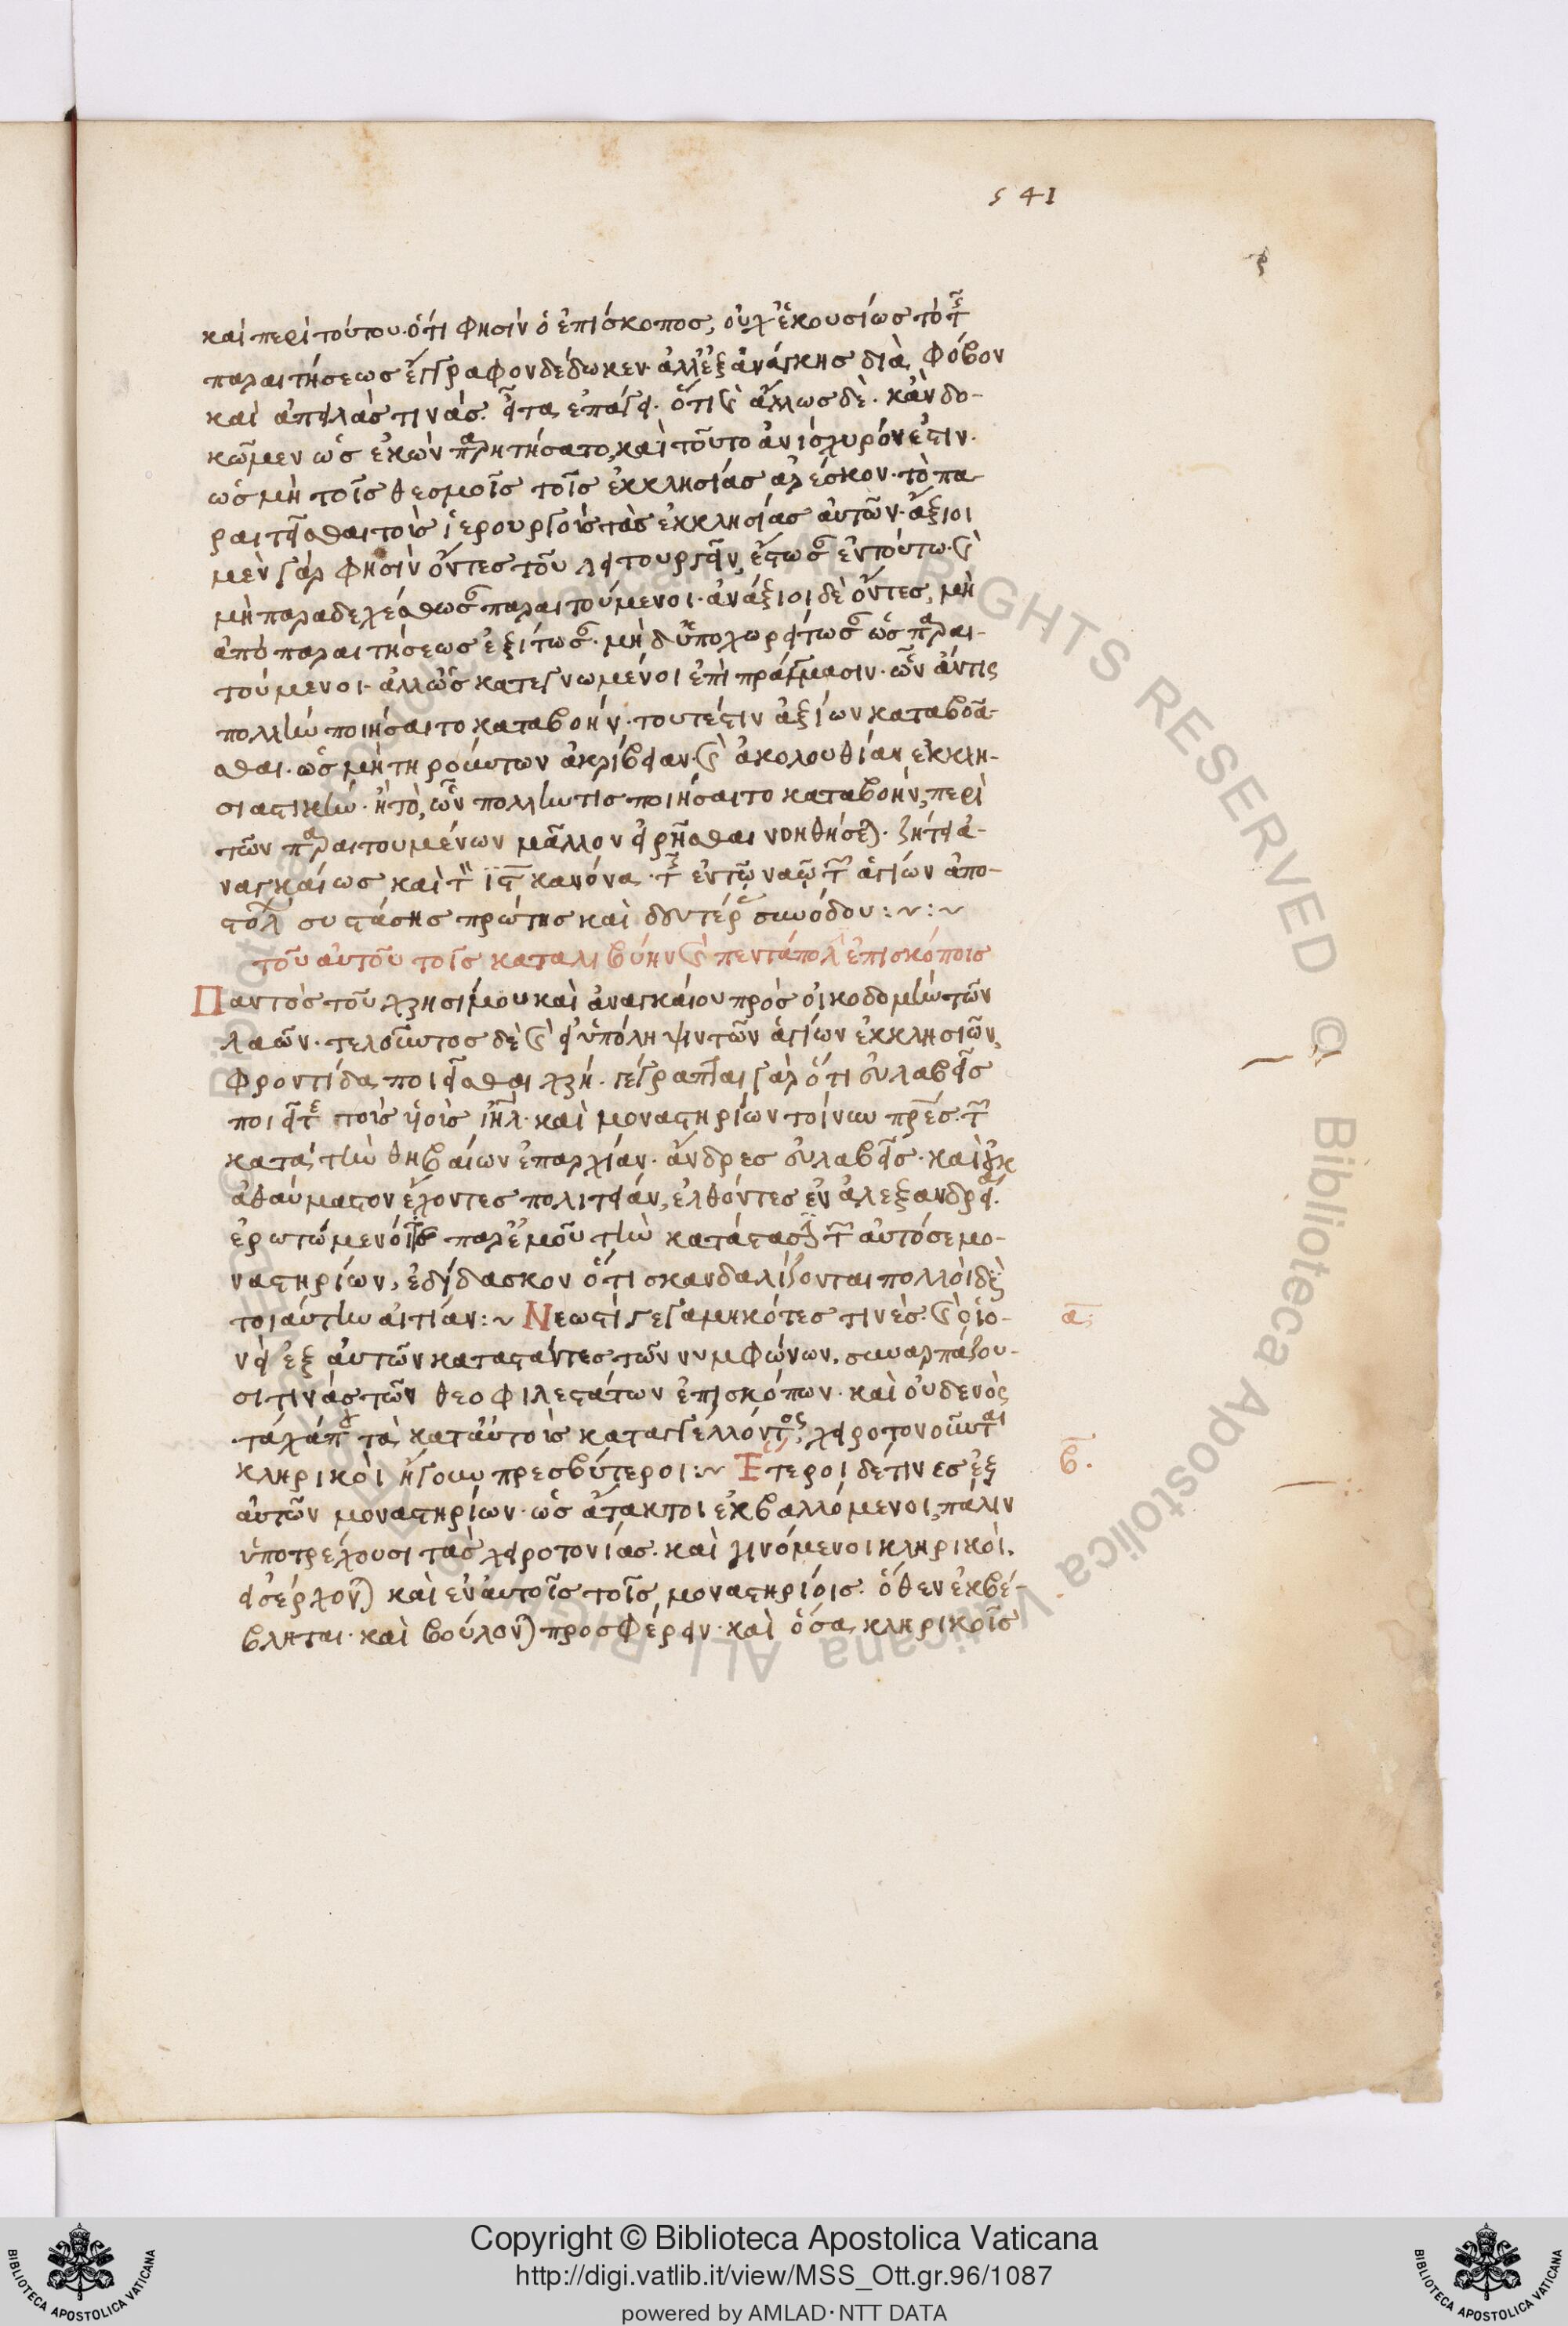 541
καὶ περὶ τούτου· ὅτι φησὶν ὁ ἐπίσκοπος, οὐχ ἑκουσίως τὸ τῆς
παραιτήσεως ἔγγραφον δέδωκεν· ἀλλ' ἐξ ἀνάγκης διὰ φόβον
καὶ ἀπειλάς τινάς. εἶτα ἐπάγει· ὅτι καὶ ἄλλως δὲ· κἂν δο-
κῶμεν ὡς ἑκὼν παρῃτήσατο, καὶ τοῦτο ἀνίσχυρόν ἐστιν·
ὡς μὴ τοῖς θεσμοῖς τοῖς ἐκκλησίας ἀρέσκον· τὸ πα-
ραιτεῖσθαι τοὺς ἱερουργοὺς τὰς ἐκκλησίας αὐτῶν· ἄξιοι
μὲν γάρ φησὶν ὄντες τοῦ λειτουργεῖν, ἔστωσαν ἐν τούτω· καὶ
μὴ παραδεχέσθωσαν παραιτούμενοι· ἀνάξιοι δὲ ὄντες, μὴ
ἀπὸ παραιτήσεως ἐξίτωσαν· μὴ δ' ὑποχωρείτωσαν ὡς παραι-
τούμενοι· ἀλλ' ὡς κατεγνωμένοι ἐπὶ πράγμασιν· ὧν ἄν τις
πολλὴν ποιήσαιτο καταβοήν· τουτέστιν ἀξίων καταβοᾶ-
σθαι· ὡς μὴ τηρούντων ἀκρίβειαν καὶ ἀκολουθίαν ἐκκλη-
σιαστικήν· ἢ τὸ, ὧν πολλήν τις ποιήσαιτο καταβοήν, περὶ
τῶν παραιτουμένων μᾶλλον εἰρῆσθαι νοηθήσεται· ζήτει ἀ-
ναγκαίως καὶ τὸν ιϛ κανόνα τῆς ἐν τῷ ναῷ τῶν ἁγίων ἀπο-
στόλων συστάσης πρώτης καὶ δευτέρας συνόδου:~:~
τοῦ αὐτοῦ τοῖς κατα λιβύην καὶ πεντάπολιν ἐπισκόποις
Παντὸς τοῦ χρησίμου καὶ ἀναγκαίου πρὸς οἰκοδομὴν τῶν
λαῶν· τελοῦντος δὲ καὶ εἰς ὑπόληψιν τῶν ἁγίων ἐκκλησιῶν,
φροντίδα ποιεῖσθαι χρή· γέγραπται γὰρ ὅτι εὐλαβεῖς
ποιεῖτε τοὺς υἱοὺς ἰηλ· καὶ μοναστηρίων τοίνυν πρες. τῶν
κατὰ τὴν θηβαίων ἐπαρχίαν· ἄνδρες εὐλαβεῖς· καὶ οὐκ
ἀθαύμαστον ἔχοντες πολιτείαν, ἐλθόντες ἐν ἀλεξανδρεία·
ἐρωτώμενοί τε παρ' ἐμοῦ τὴν κατάστασιν τῶν αὐτόσε μο-
ναστηρίων, ἐδίδασκον ὅτι σκανδαλίζονται πολλοὶ δι
τοιαύτην αἰτίαν:~ Νεωστὶ γεγαμηκότες τινὲς· καὶ οἱο- α:
νεὶ ἐξ αὐτῶν καταστάντες τῶν νυμφώνων. συναρπάζου-
σι τινὰς τῶν θεοφιλεστάτων ἐπισκόπων· καὶ οὐδενὸς
τάχα που τὰ κατ' αὐτοὺς καταγγέλλοντος, χειροτονοῦνται
κληρικοὶ ἤγουν πρεσβύτεροι:~ Ἕτεροι δέ τινες ἐξ β.
αὐτῶν μοναστηρίων· ὡς ἄτακτοι ἐκβαλλόμενοι, πάλιν
ὑποτρέχουσι τὰς χειροτονίας· καὶ γινόμενοι κληρικοὶ.
εἰσέρχονται καὶ ἐν αὐτοῖς τοῖς μοναστηρίοις· ὅθεν ἐκβέ-
βληται· καὶ βούλονται προσφέρειν· καὶ ὅσα κληρικοῖς
Copyright © Biblioteca Apostolica Vaticana
http://digi.vatlib.it/view/MSS_Ott.gr.96/1087
powered by AMLAD·NTT DATA
BIBLIOTECA APOSTOLICA VATICANA
BIBLIOTECA APOSTOLICA VATICANA